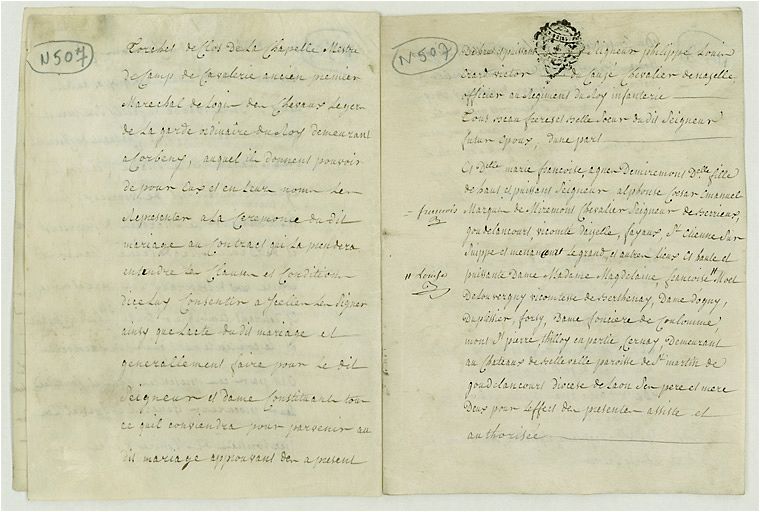 N 507
Torchet de Clos de La Chapelle Mestre
de Camp de Cavalerie ancien premier
Marechal de Logis des Chevaux Legers
de La garde ordinaire du Roy demeurant
a Corbeny, auquel ils donnent pouvoir
de pour Eux et en Leur nom Les
Representer a La Ceremonie du dit
mariage au Contract qui La precedera
entendre les Clauses et Conditions
dicelluy Consentir a sceller les signer
ainsy que Lacte du dit mariage et
generallement faire pour Le dit
Seigneur et dame Constituants tout
ce quil conviendra pour parvenir au
dit mariage approuvant des a present
N 507
De haut et puissant Seigneur philippe Louis
Erard du Cauzé Chevalier de nazelle,
officier au Regiment du Roy infanterie
Tous beau freres et belle Soeur du dit Seigneur
futur Epoux, dune part
Et Delle marie francoise agnes De miremont Delle fille
de haut et puissant Seigneur alphonse Cesar Emanuel
= francois
Marquis de Miremont Chevalier Seigneur de Berrieux,
goudelancourt, vicomte dayzelle, fayaux, St Etienne Sur
Suippe et menancourt Le grand, et autres Lieux Et haute et
" Louise
puissante Dame Madame Magdelaine, francoise " Moet
De Louvergny vicomtesse de Berthenay, Dame dogny,
Duplessier, forzy, Dame fonciere de Coulomme,
mons St pierre thilloy en partie Cernay, Demeurant
au Chateaux de Belle valle paroisse de St martin de
goudelancourt diocese de Laon Ses pere et mere
Deux pour Leffet des presentes assistée et
authorisée